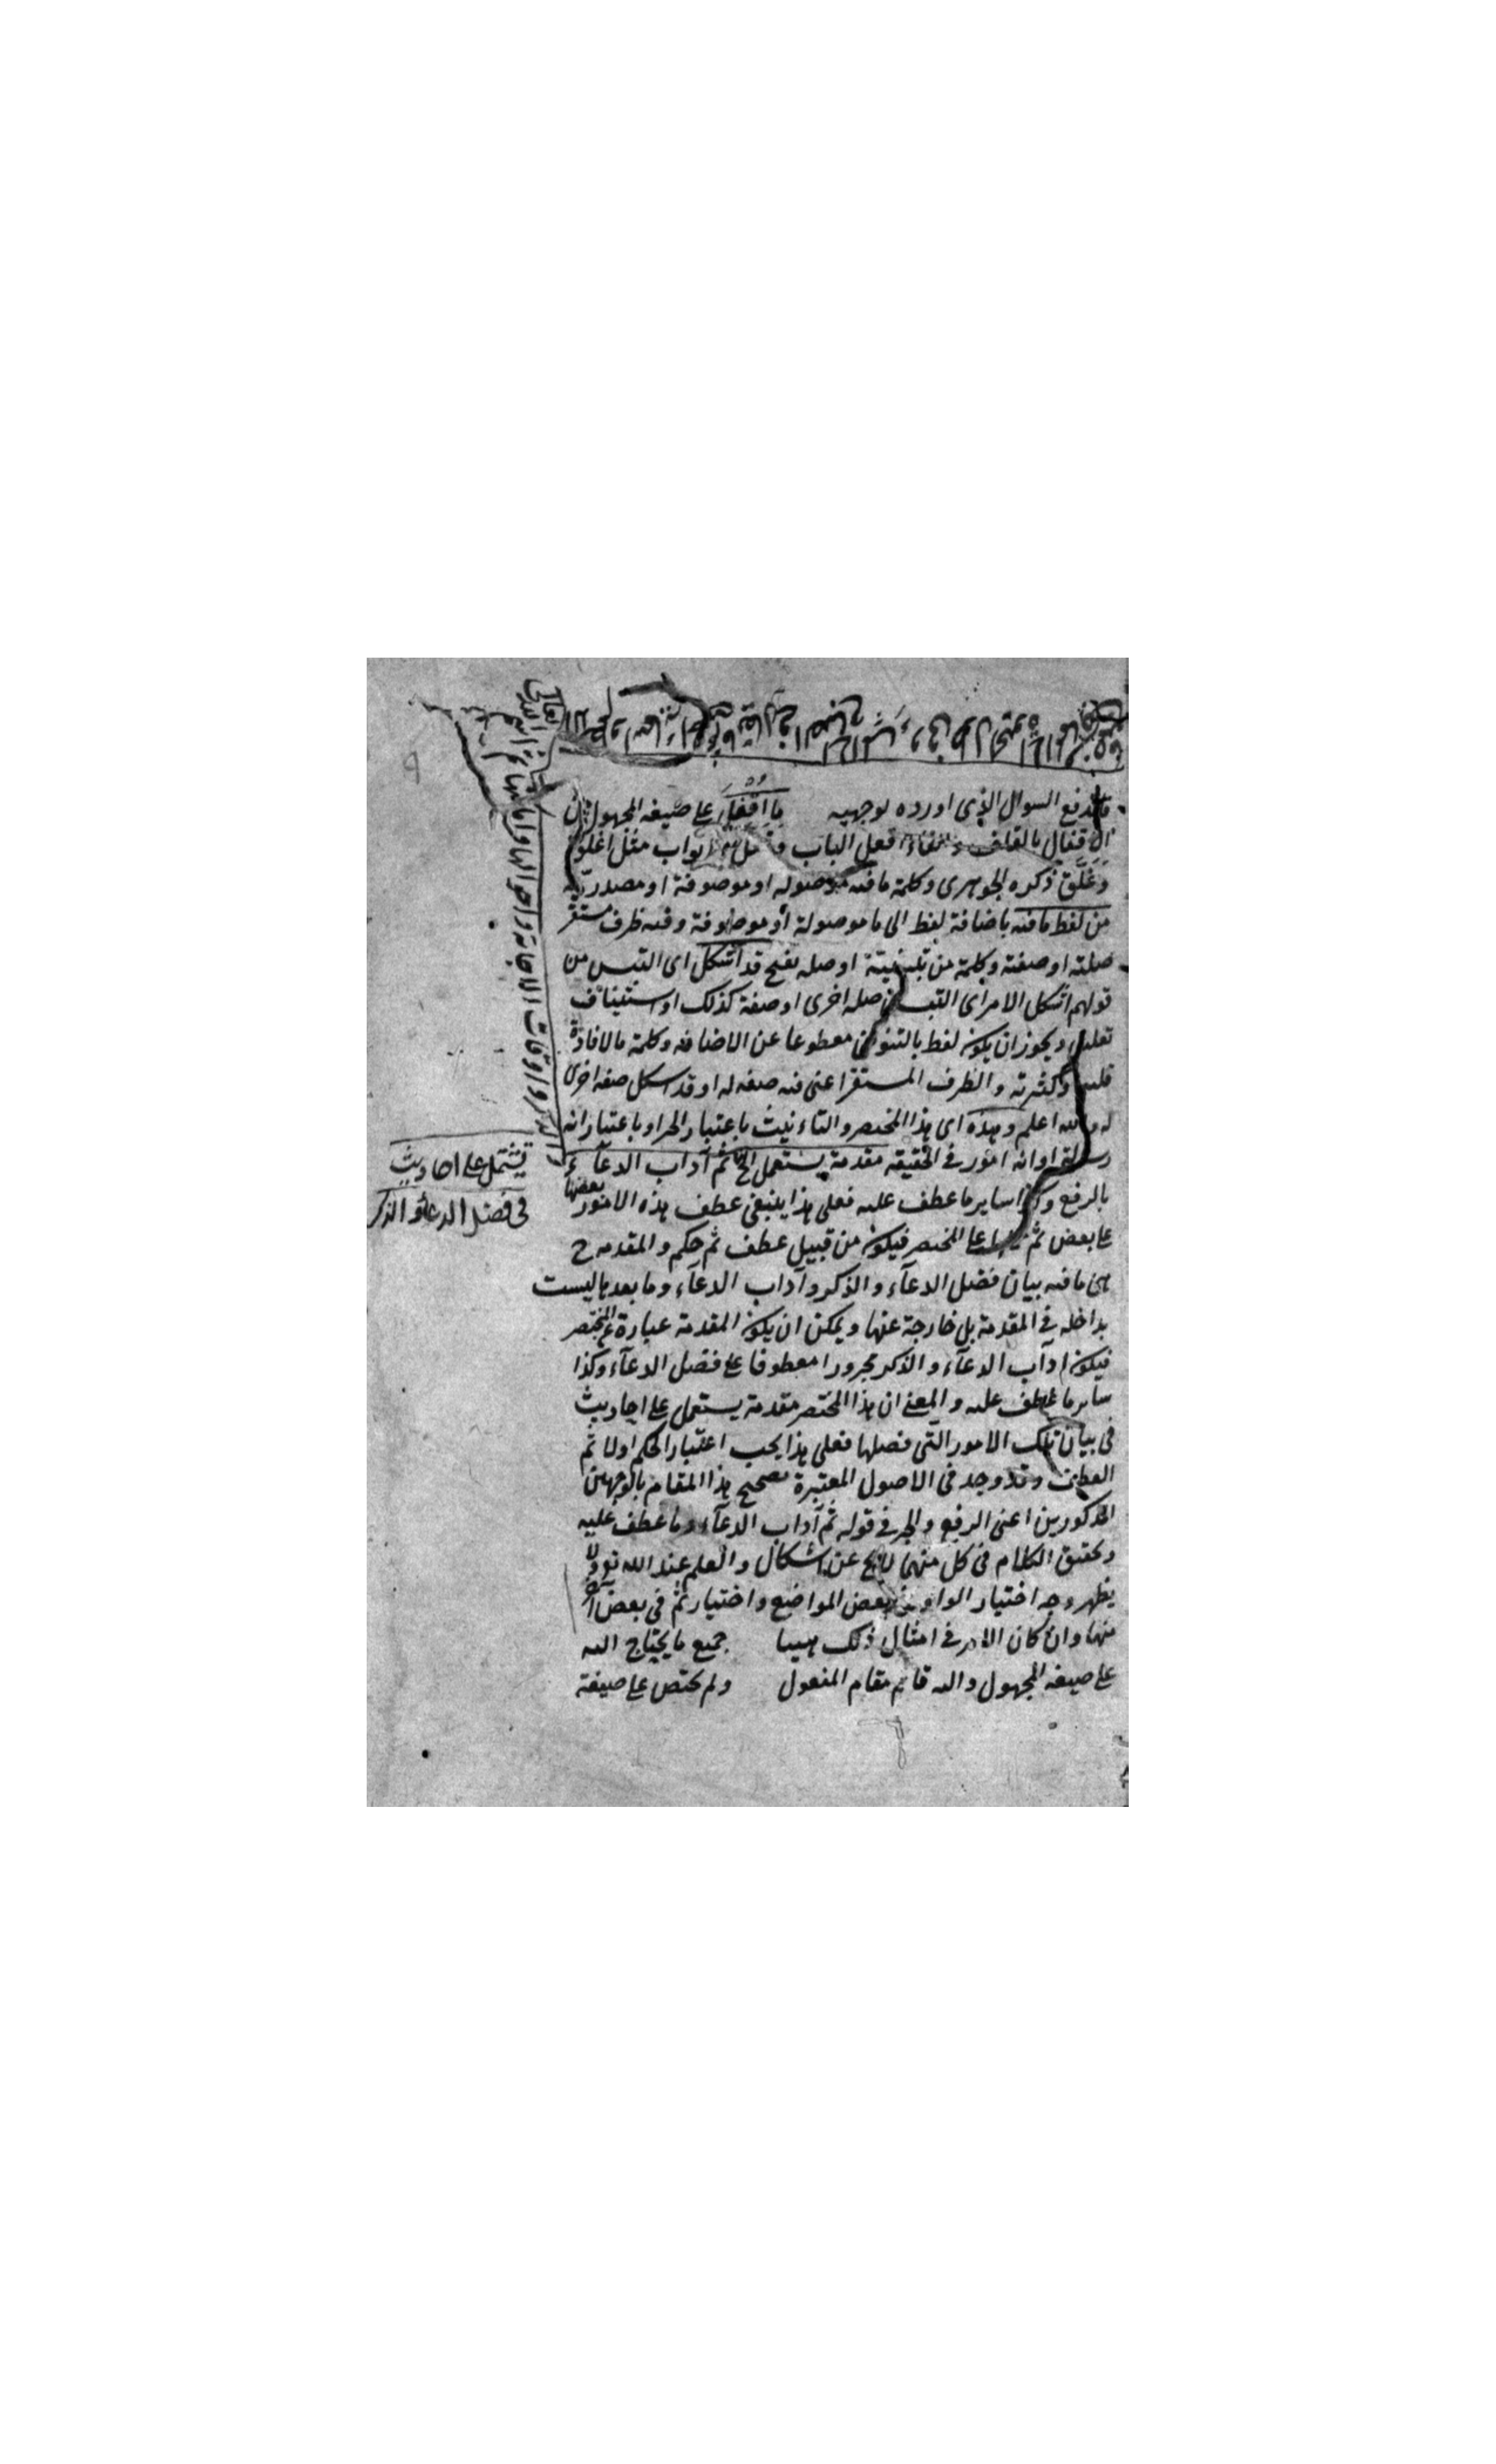 فاندفع السوال الذى اورده بوجهيه ما اقفل على صيغه المجهول من
الاقفال بالقاف والفاء اقفل الباب وقفل الابواب مثل اغلق
وغلّق ذكره الجوهرى وكلمة ما فيه موصوله او موصوفة او مصدريّه
من لفظ ما فيه باضافة لفظ الى ما موصولة أو موصوفة وفيه ظرف مستقر
صلته او صفته وكلمة من او صله نفتح قد اشكل اى التبس من
قولهم اشكل الامر اى التبس صله اخرى او صفة كذلك او استيناف
تعليل ويجوز ان يكون لفظ بالتنوين مقطوعا عن الاضافه وكلمة ما لافادة
قلته وكثرته والظرف المستقر اعنى فيه صفه له او قد اشكل صفه اخرى
له والله اعلم وهذه اى هذا المختصر والتاء نيث باعتبار الخبر او باعتبار انه
رسالة او انه امور فى الحقيقه مقدمة يشتمل الخ ثم آداب الدعآء
بالرفع وكذا ساير ما عطف عليه فعلى هذا ينبغى عطف هذه الامور بعضها
على بعض ثم على المختصر فيكون من قبيل عطف ثم حكم والمقدمه ح
هى ما فيه بيان فضل الدعآء والذكر وآداب الدعآء وما بعدها ليست
بداخله فى المقدمة بل خارجة عنها ويمكن ان يكون المقدمة عبارة عن المختصر
فيكون آداب الدعآء والذكر مجرورا معطوفا على فضل الدعآء وكذا
ساير ما عطف عليه والمعنى ان هذا المختصر مقدمة يشتمل على احاديث
فى بيان تلك الامور التى فصلها فعلى هذا يجب اعتبار الحكم اولا ثم
العطف وقد وجد فى الاصول المعتبرة تصحيح هذا المقام بالوجهين
المذكورين اعنى الرفع والجر فى قوله ثم آداب الدعآء وما عطف عليه
وتحقيق الكلام فى كل منهما لا يخ عن اشكال والعلم عند الله تع ولا
يظهر وجه اختيار الواو فى بعض المواضع واختيار ثم فى بعض آخر
منها وان كان الامر فى امثال ذلك هينا جميع ما يحتاج اليه
على صيغه المجهول واليه قايم مقام المفعول ولم يختص على صيغة
يشتمل على احاديث
فى فضل الدعآء والذكر